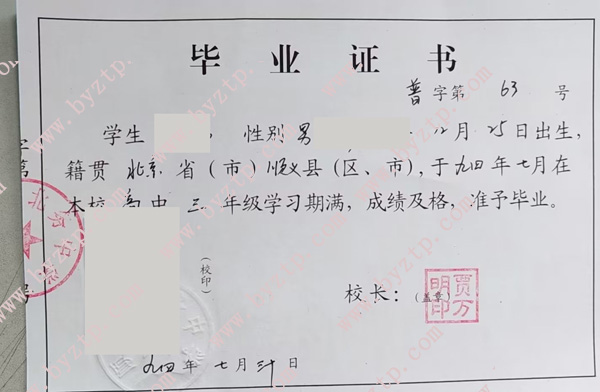 毕业证书
普字第 63 号
学生 性别 男 12月25日出生,
籍贯 北京 省(市)顺义县(区、市),于九四年七月在
本校高中三年级学习期满,成绩及格,准予毕业。
(校印)
校长:(盖章)
贾万明印
九四年七月三十日
字第
号
www.byztp.com